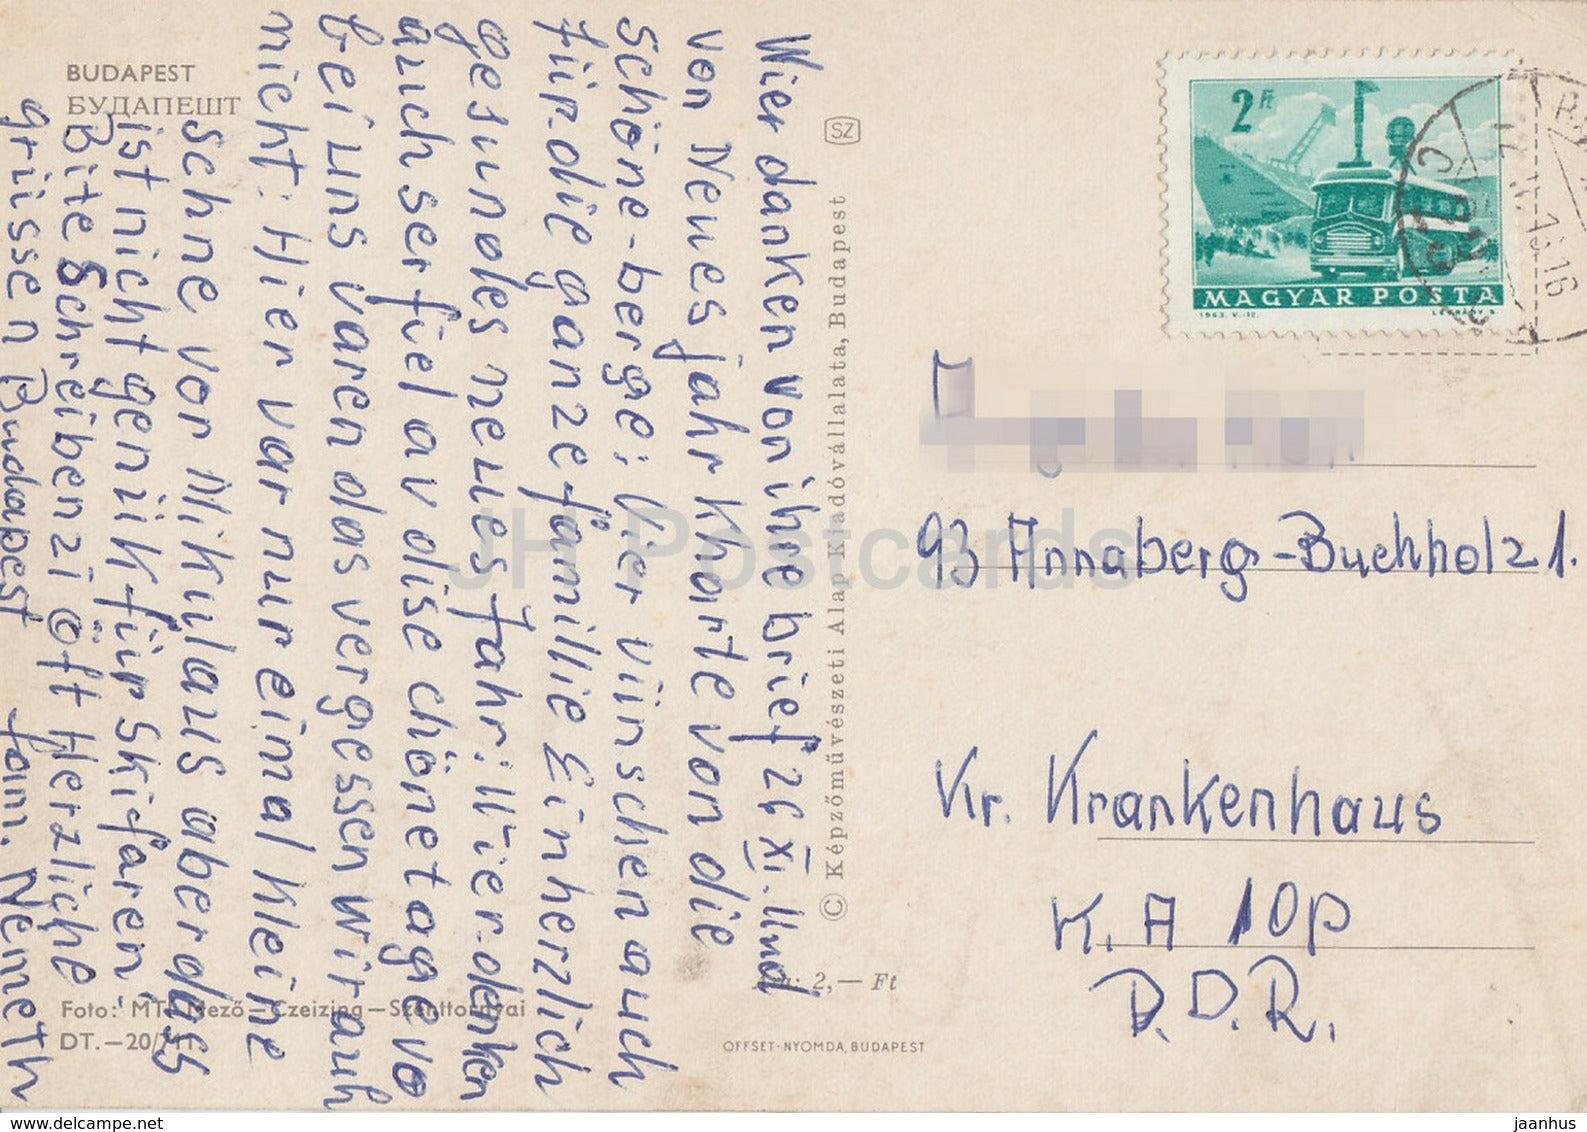 BUDAPEST
БУДАПЕШТ
Wier danken von ihre brief 26 XI. Und
von Neues jahr Kharte von die
schöne-berge; Vier vünschen auch
für die ganze familie Ein herzlich
gesundes neues Jahr: Wier denken
auch ser fiel av dise chöne tage vo
bei uns varen das vergessen wir auh
nicht: Hier var nur einmal kleine
schne vor Mikulaus aber dass
ist nicht genuk für skifaren,
Bite Schreiben zi öft Herzliche
grüssen Budapest fam. Nemeth
Foto: MTI Mező—Czeizing—Szenttornyai
DT.—20/71
© Képzőművészeti Alap Kiadóvállalata, Budapest
SZ
2,— Ft
OFFSET-NYOMDA, BUDAPEST
2 Ft
MAGYAR POSTA
1963. V.-12.
LÉGRÁDY S.
93 Annaberg-Buchholz 1.
Kr. Krankenhaus
K. A 10p
D.D.R.
JH Postcards
www.delcampe.net
jaanhus